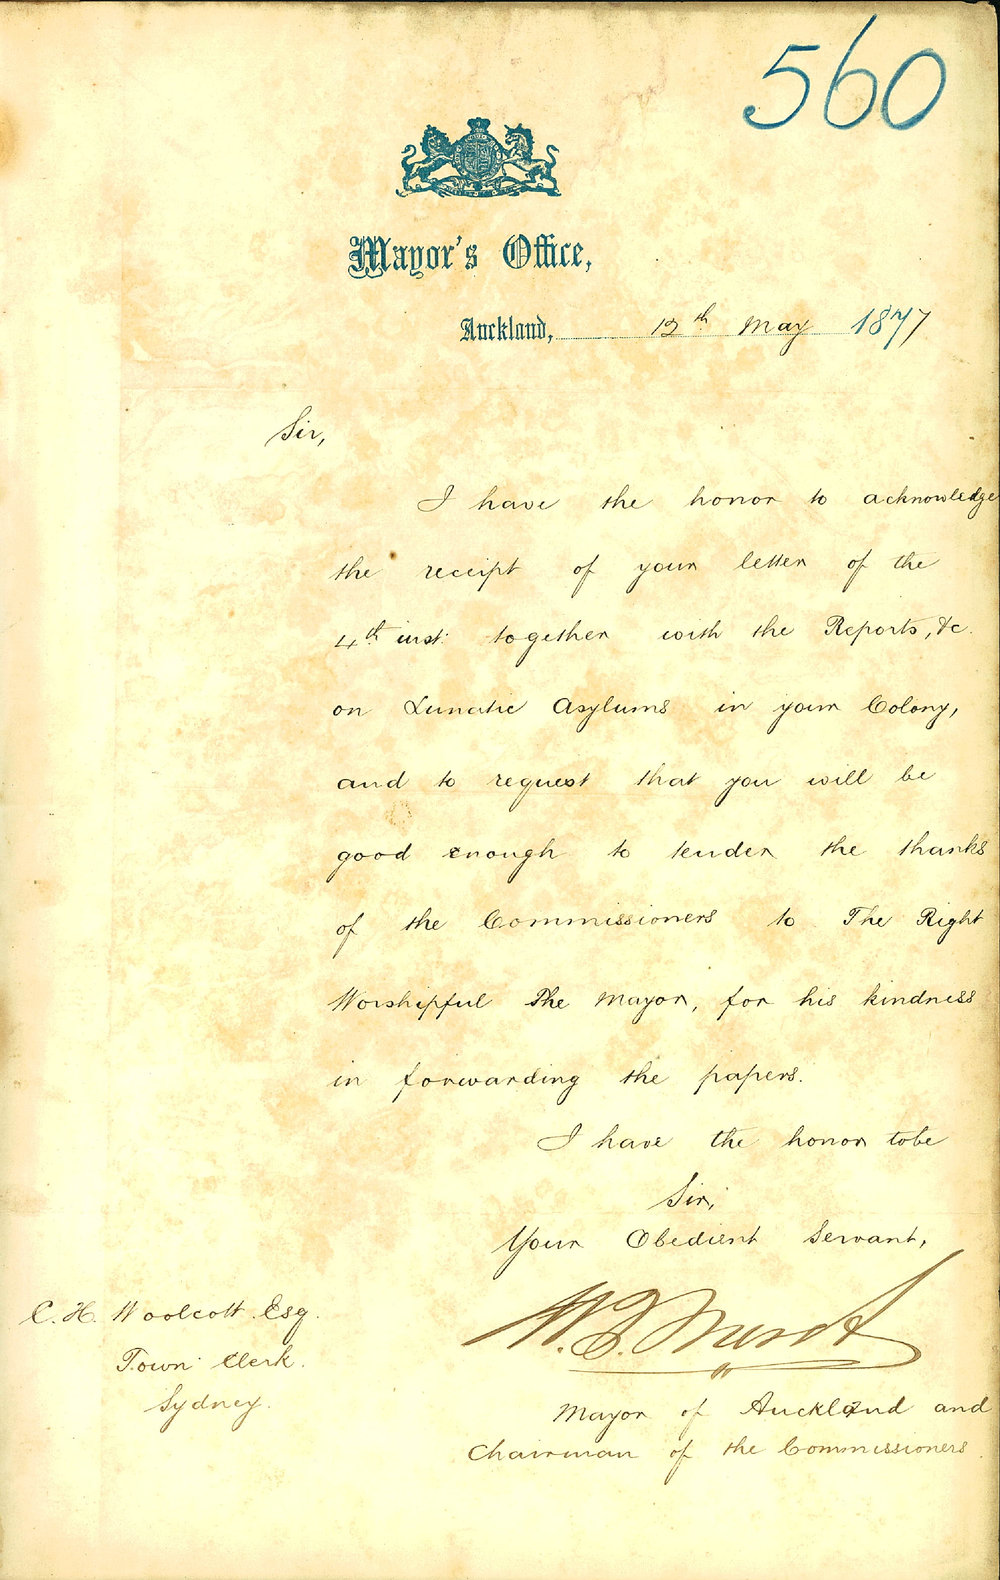 560
Mayor's Office,
Auckland, 12th May 1877
Sir,
I have the honor to acknowledge
the receipt of your letter of the
4th inst: together with the Reports, &c.
on Lunatic Asylums in your Colony,
and to request that you will be
good enough to tender the thanks
of the Commissioners to The Right
Worshipful The Mayor, for his kindness
in forwarding the papers.
I have the honor to be
Sir,
Your Obedient Servant,
C. H. Woolcott Esq.
Town Clerk.
Sydney.
Mayor of Auckland and
Chairman of the Commissioners